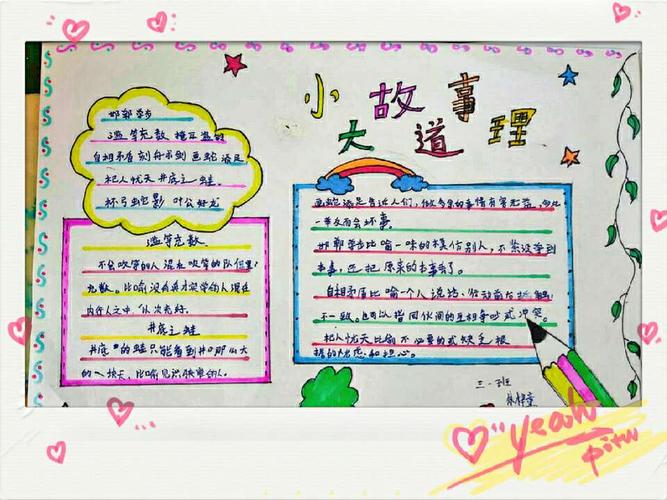 小故事
大道理
邯郸学步
滥竽充数 掩耳盗铃
自相矛盾 刻舟求剑 画蛇添足
杞人忧天 井底之蛙
杯弓蛇影 叶公好龙
滥竽充数
不会吹竽的人混在吹竽的队伍里
充数。比喻没有真才实学的人混在
内行人之中,以次充好。
井底之蛙
井底的蛙只能看到井口那么大
的一块天,比喻见识狭窄的人。
画蛇添足告诉人们,做多余的事情有害无益,
一举反而会坏事.
邯郸学步比喻一味的模仿别人,不紧没学到
本事,还把原来的本事丢了。
自相矛盾比喻一个人说话、行动前后抵触
不一致。也可以指同伙间的互相争吵或冲突。
杞人忧天比喻不必要的或缺乏根
据的忧虑和担心。
三·一班
yeah